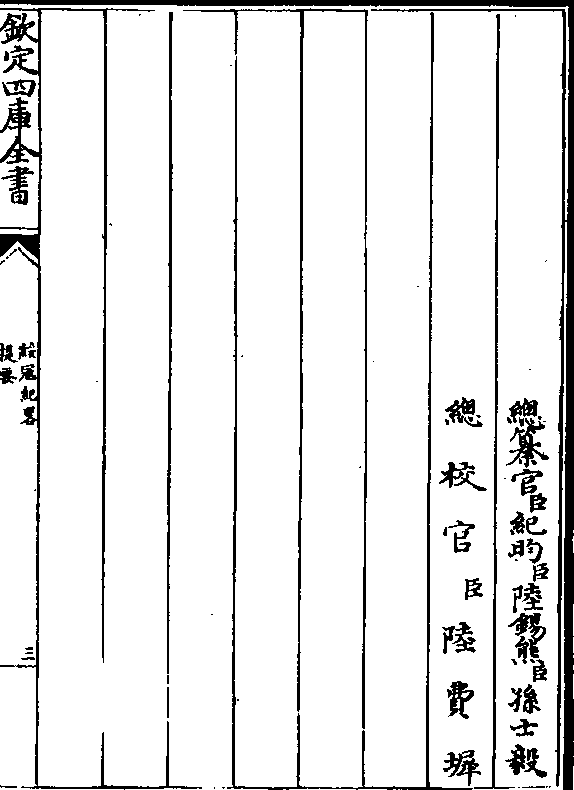 總纂官臣紀昀臣陸錫熊臣孫士毅
總校官臣陸費墀
欽定四庫全書
綏寇紀畧
提要
三